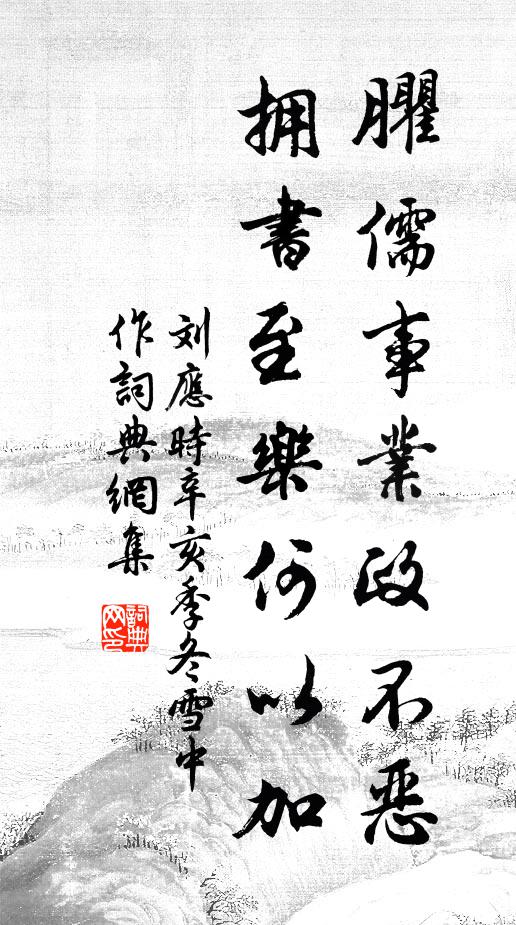 臞儒事業政不惡
拥書至樂何以加
刘應時辛亥季冬雪中
作詞典網集
詞典
网印